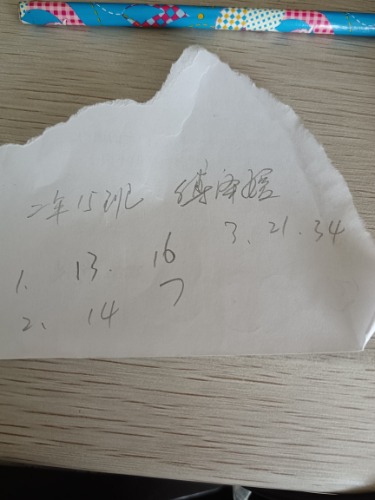 二年15班 傅泽媛
3. 21. 34
1. 13. 16
2. 14 7